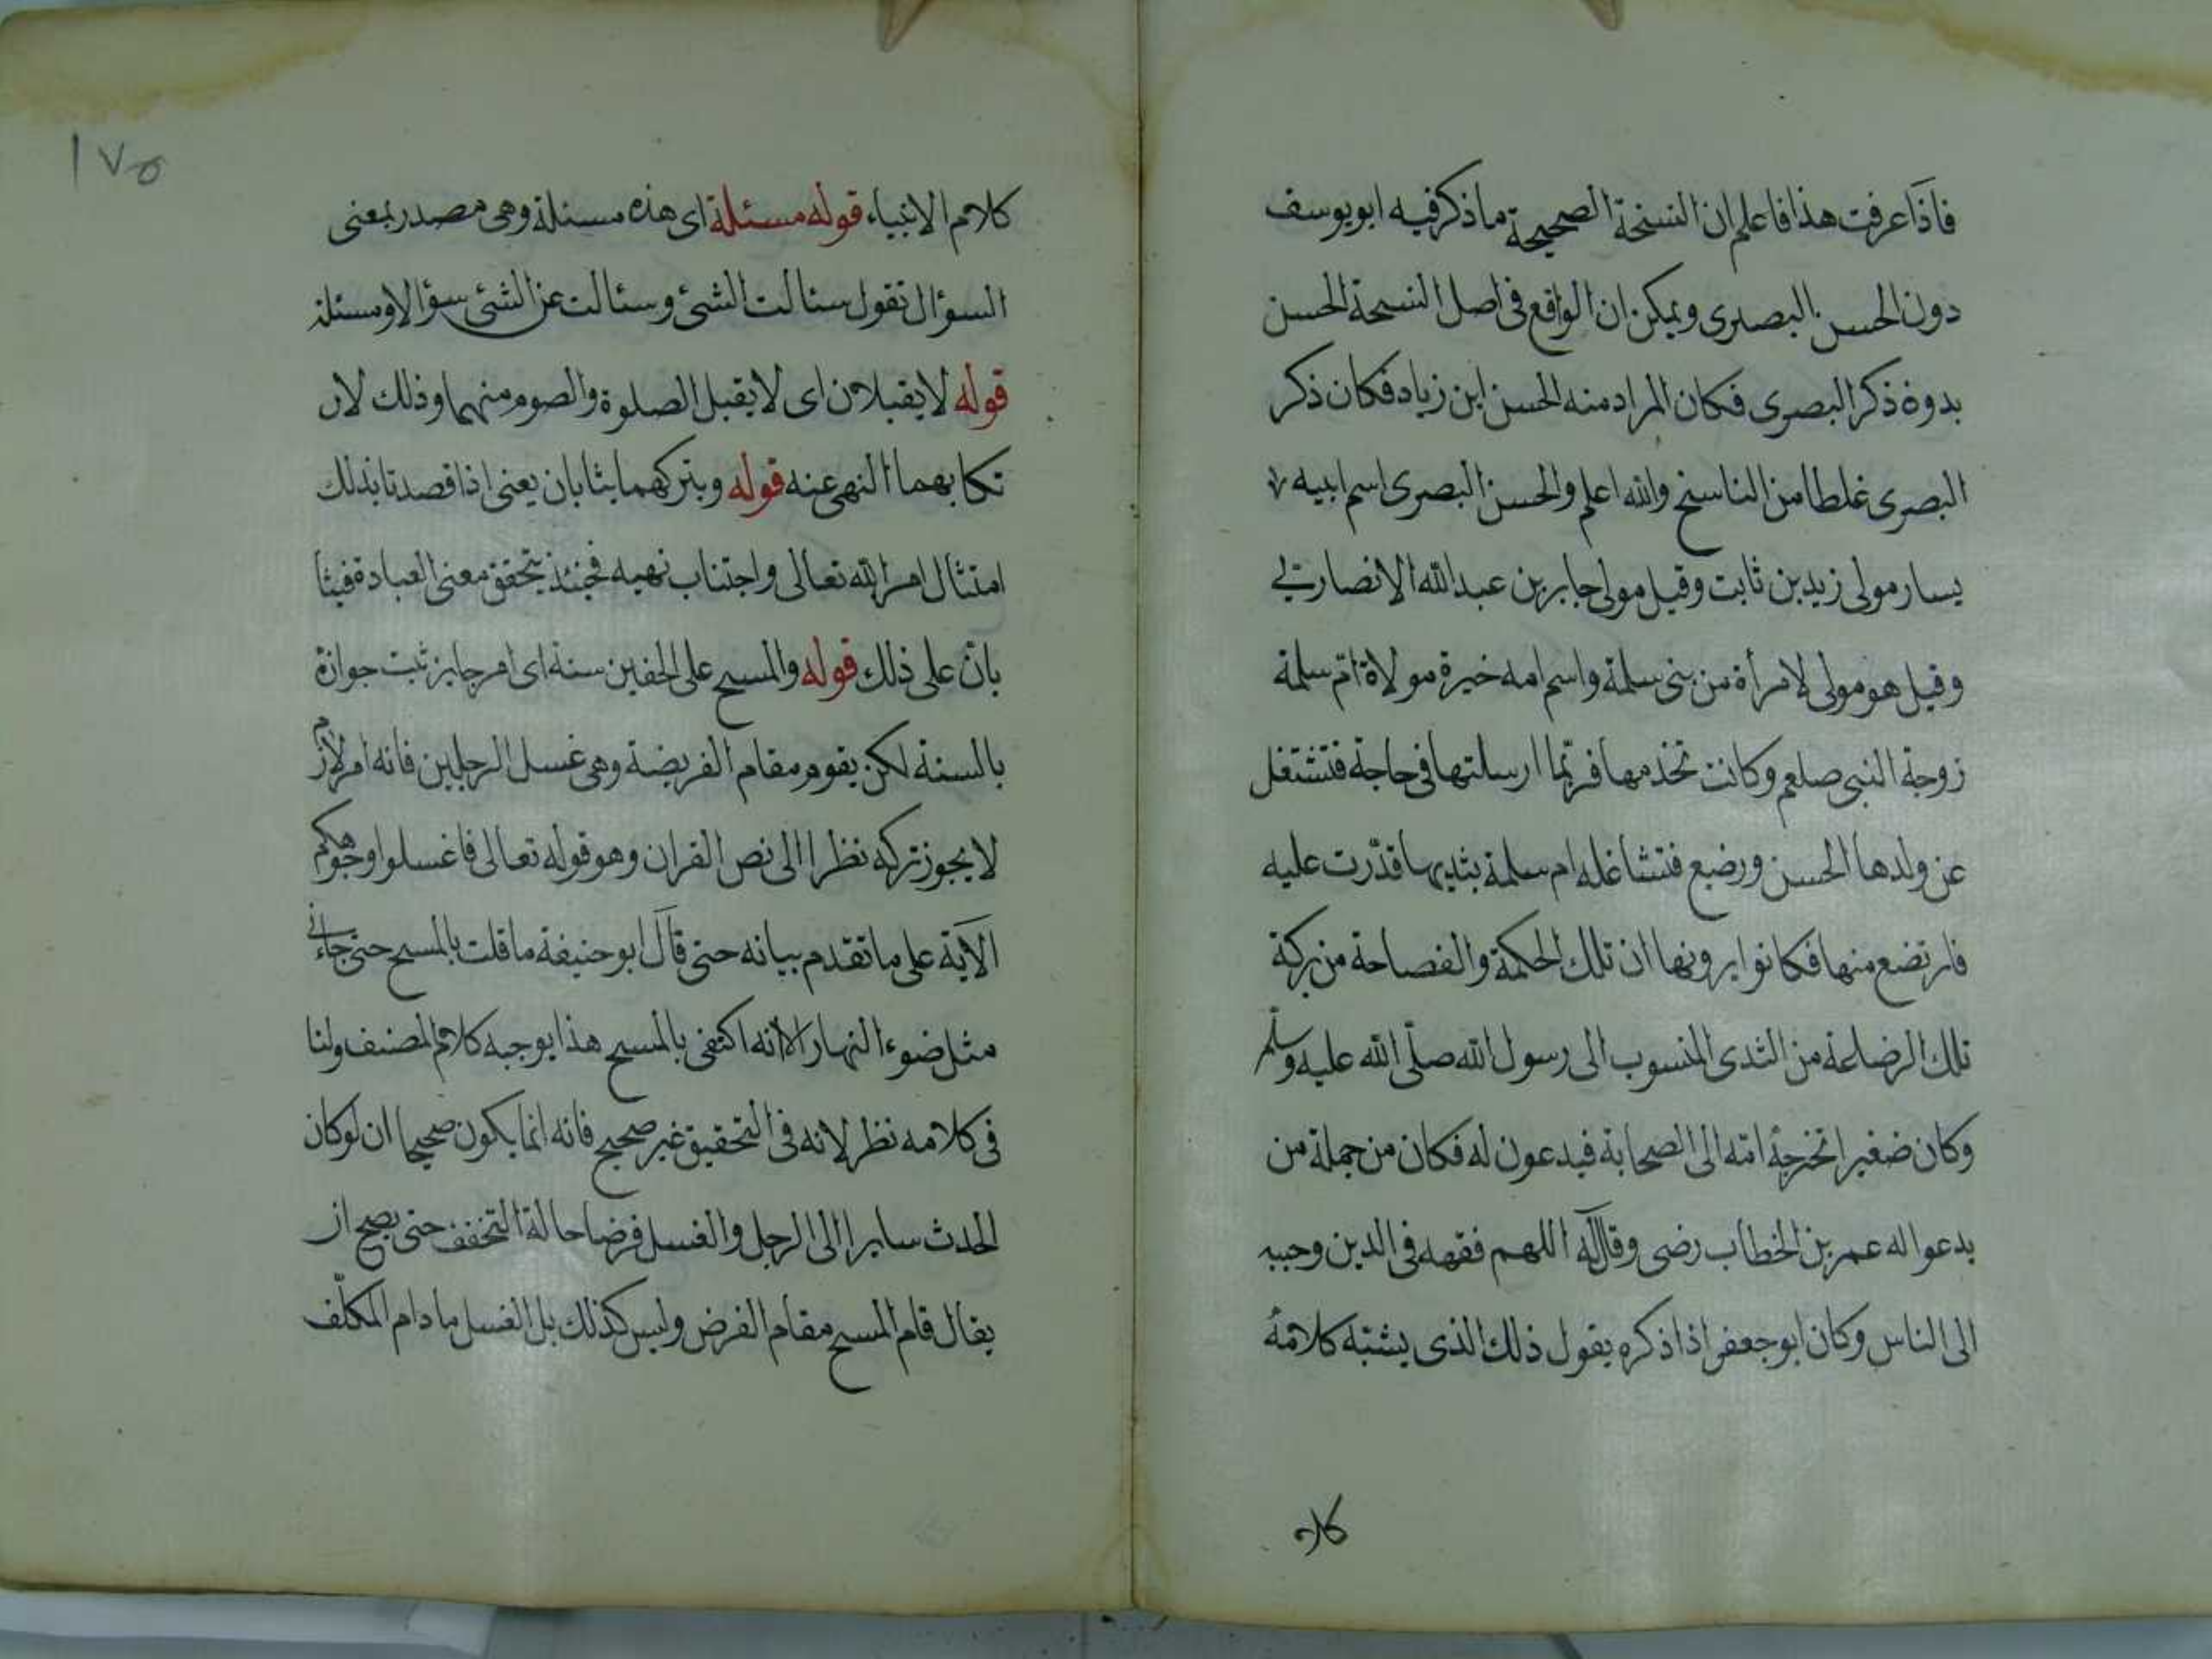 فاذا عرفت هذا فاعلم ان النسخة الصحيحة ما ذكر فيه ابو يوسف
دون الحسن البصرى ويمكن ان الواقع فى اصل النسخة الحسن
بدوة ذكر البصرى فكان المراد منه الحسن ابن زياد فكان ذكر
البصرى غلطا من الناسخ والله اعلم والحسن البصرى اسم ابيه
يسار مولى زيد بن ثابت وقيل مولى جابر بن عبد الله الانصارى
وقيل هو مولى لامرأة من بنى سلمة واسم امه خيرة مولاة امّ سلمة
زوجة النبى صلعم وكانت تخدمها فربّما ارسلتها فى حاجة فتشتغل
عن ولدها الحسن ورضيع فتشاغله ام سلمة بثديها فدّرت عليه
فارتضع منها فكانوا يرونها ان تلك الحكمة والفصاحة من بركة
تلك الرضاعة من الثدى المنسوب الى رسول الله صلّى الله عليه وسلم
وكان ضغيرا تخرجه امّه الى الصحابة فيدعون له فكان من جملة من
يدعوا له عمر بن الخطاب رضى وقال له اللهم فقهه فى الدين وحببه
الى الناس وكان ابو جعفر اذا ذكره يقول ذلك الذى يشبّه كلامهُ
كلام
١٧٥
كلام الانبياء قوله مسئلة اى هذه مسئلة وهى مصدر بمعنى
السؤال تقول سئالت الشئ وسئالت عن الشئ سؤالا ومسئلة
قوله لا يقبلان اى لا يقبل الصلوة والصوم منهما وذلك لان
تكابهما النهى عنه قوله وبتركهما يثابان يعنى اذا قصدتا بذلك
امتثال امر الله تعالى واجتناب نهيه فحينئذ يتحقق معنى العبادة فيثا
بان على ذلك قوله والمسح على الخفين سنة اى امر جايز ثبت جوازة
بالسنة لكن يقوم مقام الفريضة وهى غسل الرجلين فانه امر لازم
لا يجوز تركه نظرا الى نص القران وهو قوله تعالى فاغسلوا وجوهكم
الآية على ما تقدم بيانه حتى قال ابو حنيفة ما قلت بالمسح حتى جاءنى
مثل ضوء النهار الا انه اكتفى بالمسح هذا يوجبه كلام المصنف ولنا
فى كلامه نظر لانه فى التحقيق غير صحيح فانه انما يكون صحيحا ان لو كان
الحدث سايرا الى الرجل والغسل فرضا حالة التخفف حتى يصح ان
يقال قام المسح مقام الفرض وليس كذلك بل الغسل ما دام المكلّف